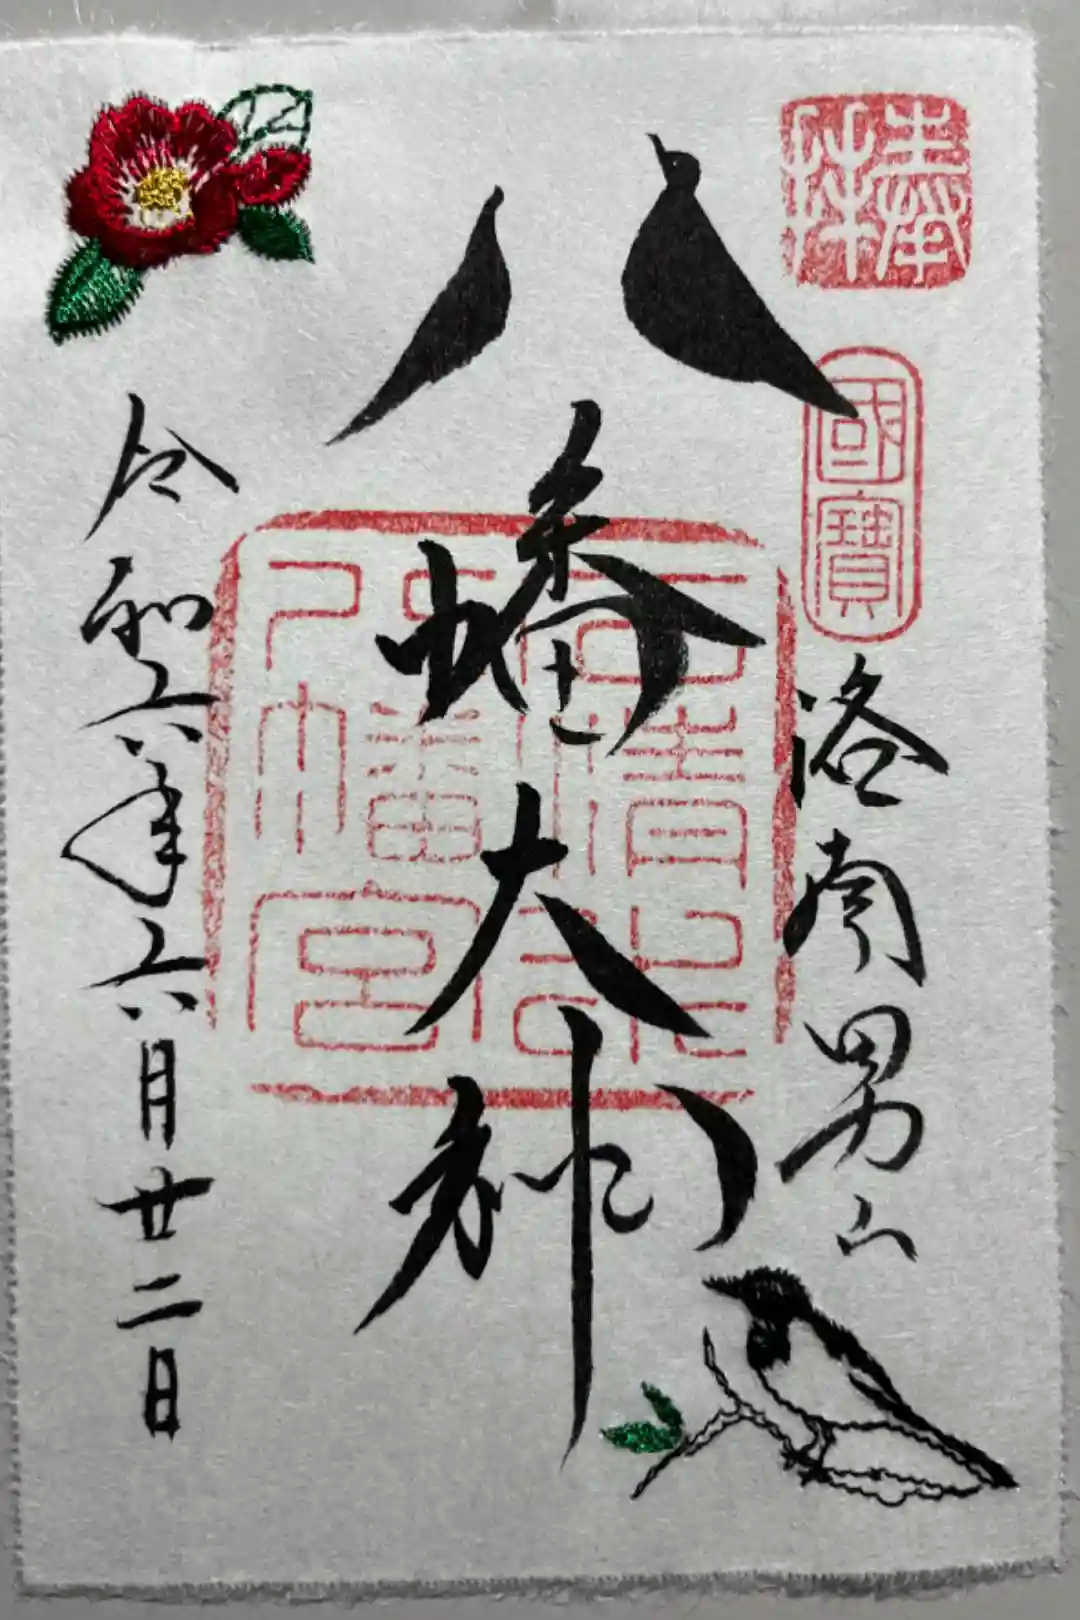 奉拝
國寶
洛南男山
八幡大神
石清水八幡宮
令和六年六月廿二日